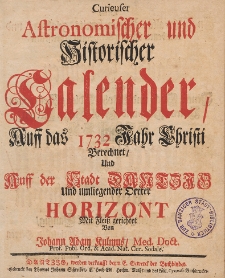 Curieuser
Astronomischer und
Historischer
Calender/
Auff das 1732 Jahr Christi
Berechnet/
Und
Auff der Stadt DANTZIG
Und umliegender Oerter
HORIZONT
Mit Fleiß gerichtet
Von
Johann Adam Kulmus/ Med. Doct.
Prof. Publ. Ord. & Acad. Nat. Cur. Sodale.
DANTZIG, werden verkaufft von E. Gewerck der Buchbinder.